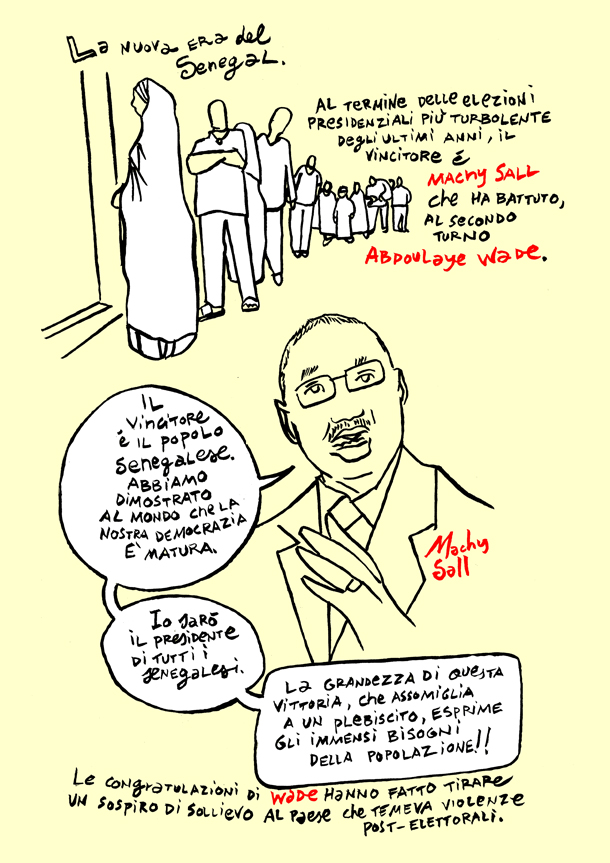 La nuova era del
Senegal.
Al termine delle elezioni
presidenziali più turbolente
degli ultimi anni, il
vincitore è
Machy Sall
che ha battuto,
al secondo
turno
Abdoulaye Wade.
Il
vincitore
è il popolo
senegalese.
Abbiamo
dimostrato
al mondo che la
nostra democrazia
e' matura.
Machy
Sall
Io sarò
il presidente
di tutti i
senegalesi.
La grandezza di questa
vittoria, che assomiglia
a un plebiscito, esprime
gli immensi bisogni
della popolazione!!
Le congratulazioni di Wade hanno fatto tirare
un sospiro di sollievo al paese che temeva violenze
post-elettorali.